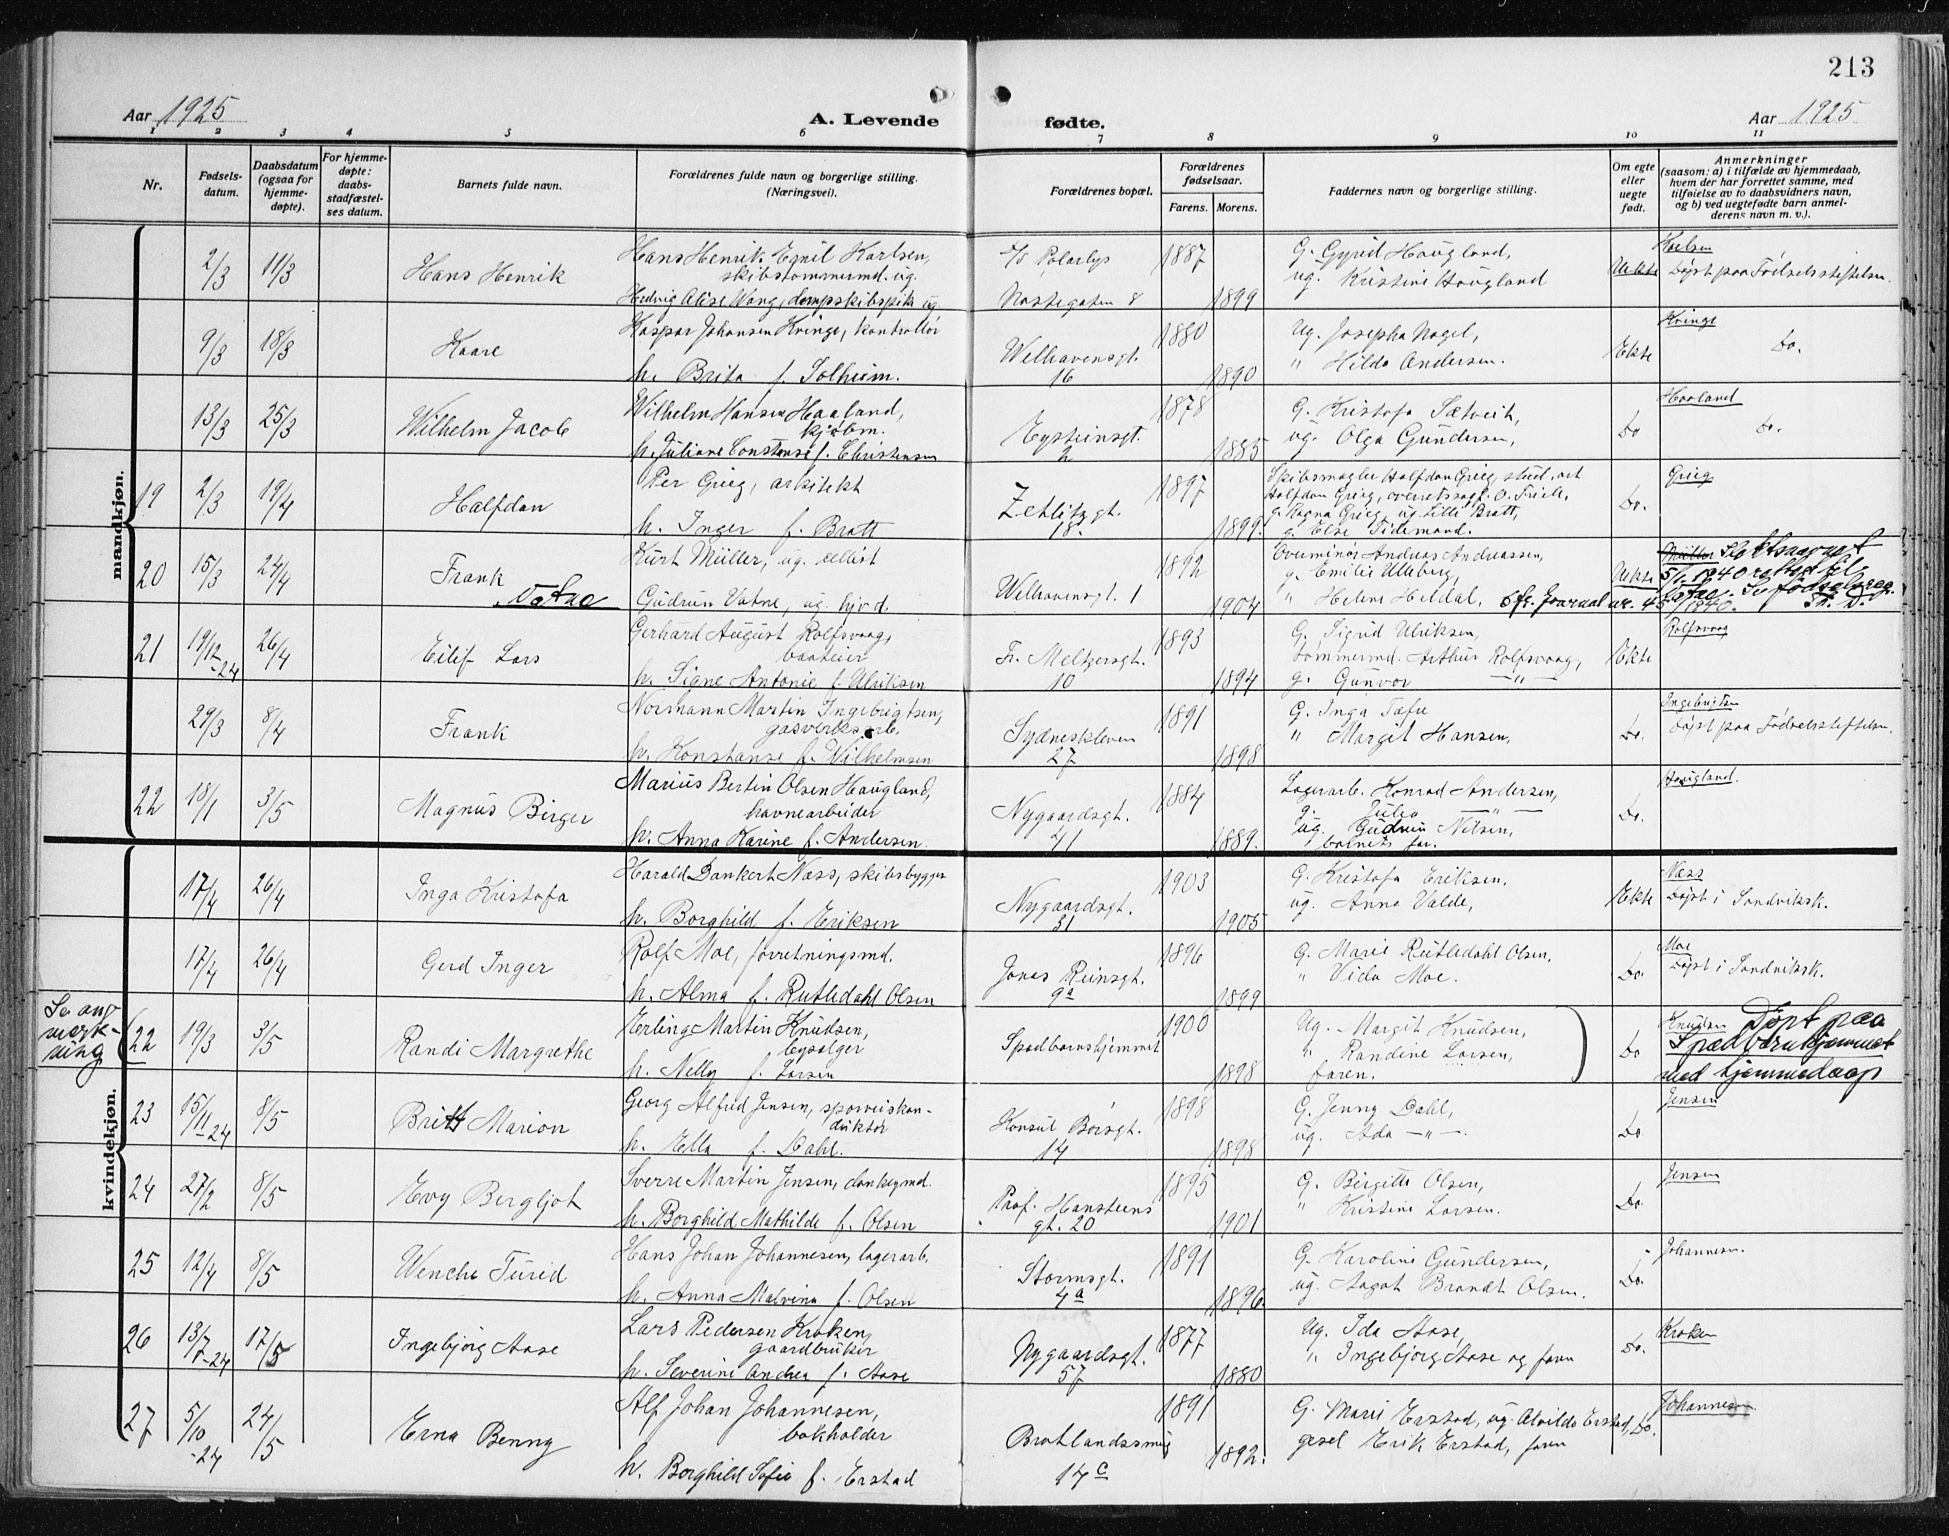 213
Aar 1925
A. Levende
fødte.
Aar 1925
1 2 3 4 5 6 7 8 9 10 11
Nr.
Fødsels-
datum.
Daabsdatum
(ogsaa for
hjemme-
døpte).
For hjemme-
døpte:
daabs-
stadfæstel-
ses datum.
Barnets fulde navn.
Forældrenes fulde navn og borgerlige stilling.
(Næringsvei).
Forældrenes bopæl.
Forældrenes
fødselsaar.
Farens. Morens.
Faddernes navn og borgerlige stilling.
Om egte
eller
uegte
født.
Anmerkninger
(saasom: a) i tilfælde av hjemmedaab,
hvem der har forrettet samme, med
tilføielse av to daabsvidners navn,
og b) ved uegtefødte barn anmel-
derens navn m. v.).
mandkjøn.
2/3 11/3 Hans Henrik
Hans Henrik Emil Karlsen,
skibstømmermd. ug.
Hedvig Alise Wang, dampskibspike ug.
D/S Polarlys
Nøstegaten 8
1887
1899
G. Gyrid Haugland,
ug. Kristine Haugland
Uekte
Døpt paa Fødselsstiftelsen
9/3 18/3 Kaare
Kaspar Johansen Kringe, kontrollør
h. Brita f. Solheim.
Welhavensgt.
16
1880
1890
Ug. Josepha Nagel,
" Hilda Andersen.
Ekte
Kringe
Do.
13/3 25/3 Wilhelm Jacob
Wilhelm Hansen Haaland,
kjøbm.
h. Juliane Constanse f. Christensen
Eysteinsgt.
2
1878
1885
G. Kristofa Sætveit,
ug. Olga Gundersen,
Do
Haaland
Do.
19 2/3 19/4 Halfdan
Per Grieg, arkitekt
h. Inger f. Bratt
Zetlitzgt.
18.
1897
1899
Skibsmægler Halfdan Grieg, stud. art
Halfdan Grieg, overretssagf. O. Frich,
g. Ragna Grieg, ug. Lilli Bratt,
g. Else Tidemand.
Do.
Grieg
20 15/3 24/4 Frank
Vatne
Kurt Müller, ug. cellist
Gudrun Vatne, ug. hjvd.
Welhavensgt. 1
1892
1904
Overminør Andreas Andreassen,
g. Emilie Ulleberg,
" Helene Heldal.
Uekte
Müller Slektsnavnet
5/1 1940 rettet til
Vatne. Se fødselsreg.
Sfr. Journal nr. 45/1940. Th. D.
21 19/12-24 26/4 Eilif Lars
Gerhard August Rolfsvaag,
baateier
h. Signe Antonie f. Ulriksen
Fr. Meltzersgt.
10
1893
1894
G. Sigrid Ulriksen,
tømmermd. Arthur Rolfsvaag,
g. Gunvor — " —
Ekte
Rolfsvaag
29/3 8/4 Frank
Normann Martin Ingebrigtsen,
gasverksarb.
h. Konstanse f. Wilhelmsen
Sydneskleven
27
1891
1898
G. Inga Tafre
" Margit Hansen,
Do.
Ingebrigtsen
Døpt paa Fødselsstiftelsen.
22 18/1 3/5 Magnus Birger
Marius Bertin Olsen Haugland,
havnearbeider
h. Anna Karine f. Andersen.
Nygaardsgt.
41
1884
1889.
Lagerarb. Konrad Andersen,
g. Julia — " —
ug. Gudrun Nilsen,
barnets far.
Do.
Haugland.
kvindekjøn.
17/4 26/4 Inga Kristofa
Harald Dankert Næss, skibsbygger
h. Borghild f. Eriksen
Nygaardsgt.
31
1903
1905
G. Kristofa Eriksen.
ug. Anna Valde,
Ekte
Næss
Døpt i Sandviksk.
17/4 26/4 Gerd Inger
Rolf Moe, forretningsmd.
h. Alma f. Rutledahl Olsen
Jonas Reinsgt.
9a
1896
1899
G. Marie Rutledahl Olsen,
" Vida Moe.
Do.
Moe
Døpt i Sandviksk.
Se an-
merk-
ning
22 19/3 3/5 Randi Margrethe
Erling Martin Knudsen,
bysælger
h. Nelly f. Larsen
Spædbarnshjemmet
1900
1898
Ug. Margit Knudsen,
" Randine Larsen,
faren.
Do
Knudsen Døpt paa
Spædbarnhjemmet
med hjemmedaap
23 15/11-24 8/5 Britt Marion
Georg Alfred Jensen, sporveiskon-
duktør
h. Ella f. Dahl.
Konsul Børsgt.
14
1898
1898
G. Jenny Dahl,
ug. Ada — " —.
Do
Jensen
24 27/2 8/5 Evy Bergljot
Sverre Martin Jensen, donkeymd.
h. Borghild Mathilde f. Olsen
Prof. Hansteens
gt. 20
1895
1901
G. Birgitte Olsen,
" Kristine Larsen.
Do.
Jensen
25 12/4 8/5 Wenche Turid
Hans Johan Johannesen, lagerarb.
h. Anna Malvina f. Olsen
Stormsgt.
4a
1891
1896.
G. Karoline Gundersen,
ug. Aagot Brandt Olsen.
Do.
Johannesen.
26 13/7-24 17/5 Ingebjørg Aase
Lars Pedersen Kroken,
gaardbruker
h. Severine Andrea f. Aase
Nygaardsgt.
57
1877
1880
Ug. Ida Aase,
" Ingebjørg Aase og faren
Do.
Kroken
27 5/10-24 24/5 Erna Benny
Alf Johan Johannesen,
bokholder
h. Borghild Sofie f. Erstad
Bratlandssmug
14c
1891
1892.
G. Marie Erstad, ug. Alvilde Erstad,
gesel Erik Erstad, faren
Do.
Johannesen